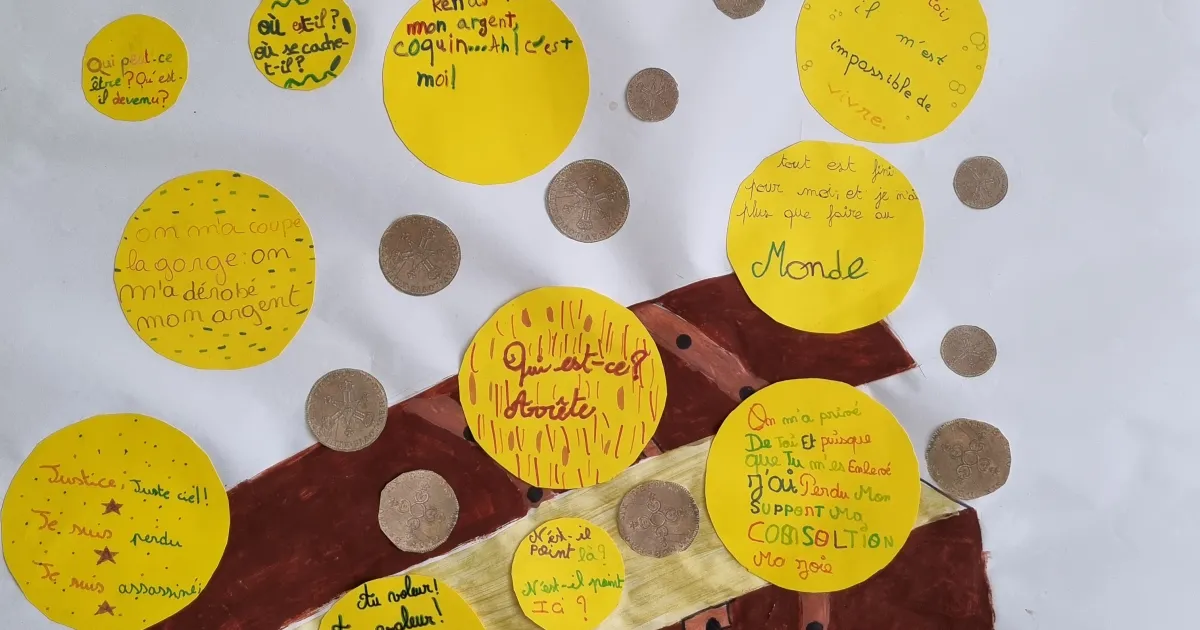 Qui peut-ce
être ? Qu'est-
il devenu?
où est-il?
où se cache-
t-il?
Rends
mon argent,
coquin...Ah! c'est
moi!
toi,
il m'est
impossible de
vivre.
tout est fini
pour moi, et je n'ai
plus que faire au
Monde
on m'a coupé
la gorge: on
m'a dérobé
mon argent
Qui est-ce?
Arrête
On m'a privé
De Toi Et puisque
que Tu m'es Enlevé
J'ai Perdu Mon
SUPPORT Ma
CONSOLTION
Ma Joie
Justice, Juste ciel!
Je suis perdu
Je suis assassiné,
N'est-il
point là?
N'est-il point
Ici ?
Au voleur!
voleur!